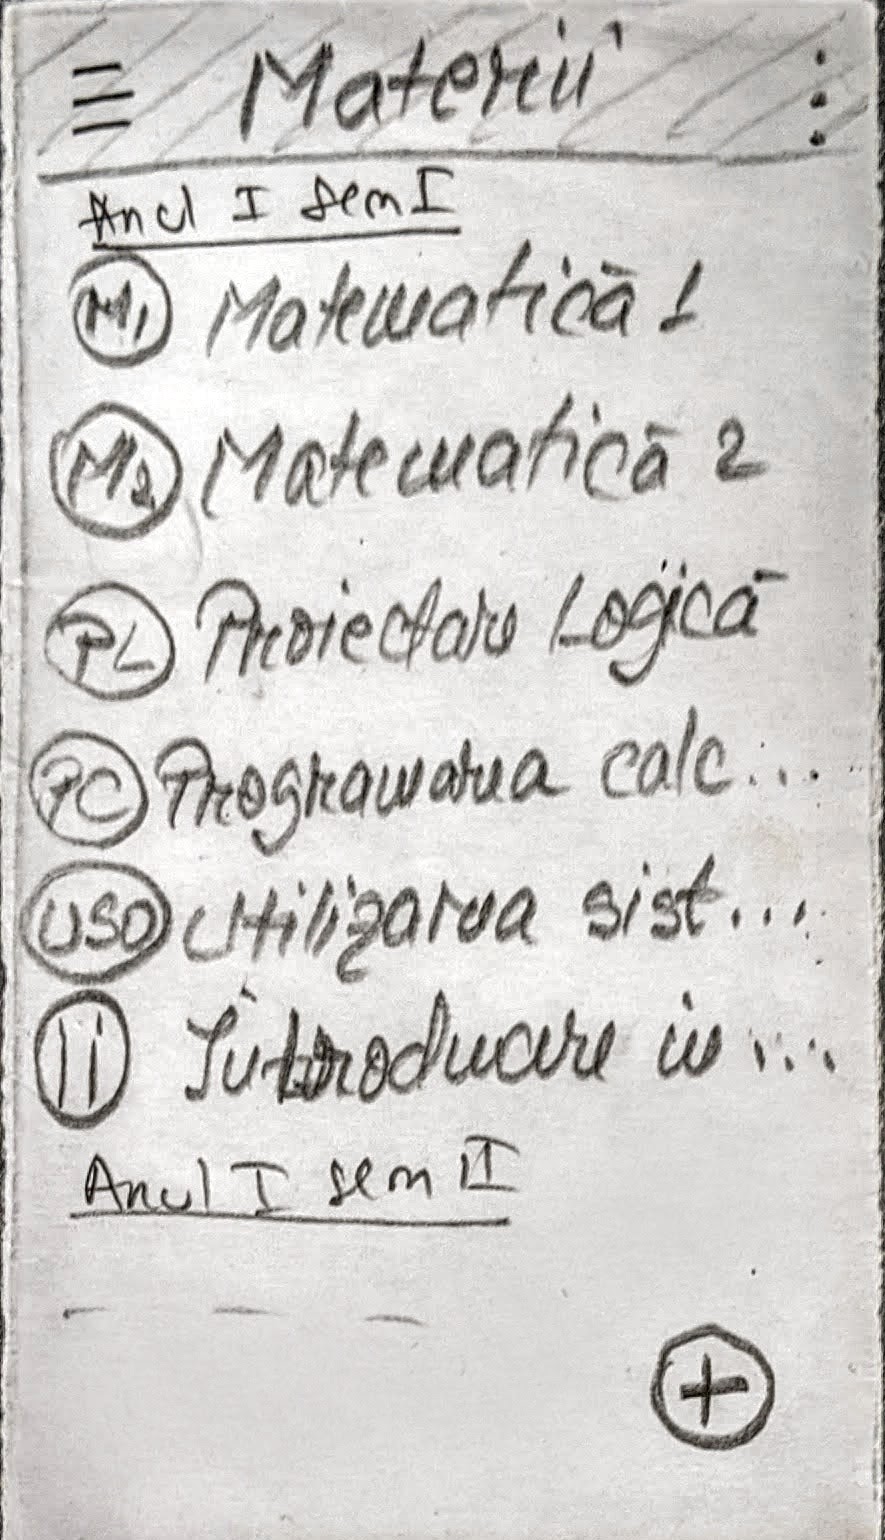 Materii
Anul I sem I
M1 Matematică 1
M2 Matematică 2
PL Proiectare Logică
PC Programarea calc...
USO Utilizarea sist...
II Introducere în ...
Anul I sem II
+